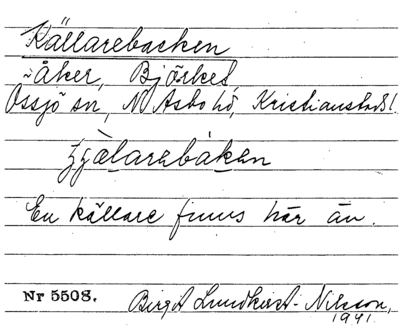 Källarebacken
~åker, Björket,
Össjö sn, N Åsbo hd, Kristianstads l.
En källare finns här än.
Nr 5508. Birgit Lundkvist-Nilsson,
1941.